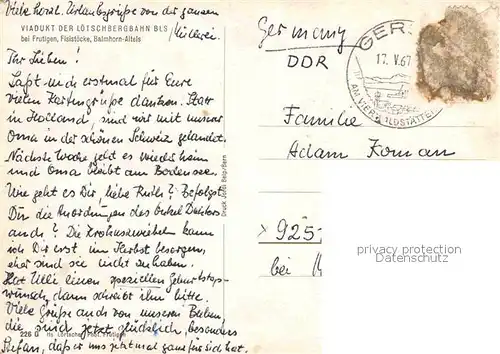 Viele herzl. Urlaubsgrüße von der ganzen
VIADUKT DER LÖTSCHBERGBAHN BLS
bei Frutigen, Fisistöcke, Balmhorn-Altels
Ihr Lieben!
Laßt mich erstmal für Eure
vielen Kartengrüße danken. Statt
in Holland, sind wir mit unser
Oma in der schönen Schweiz gelandet.
Nächste Woche geht es wieder heim
und Oma bleibt am Bodensee.
Wie geht es Dir, liebe Ruth? Befolgst
Du die Anordnungen des Onkel Doktors
auch? Die Krokuszwiebeln kann
ich Dir erst im Herbst besorgen,
eher sind sie nicht zu haben.
Hat Ulli einen speziellen Geburtstags-
wunsch, dann schreibt ihn bitte.
Viele Grüße auch von unseren Buben,
die sind jetzt glücklich, besonders
Stefan, daß er uns jetzt mal ganz für sich hat.
226 G
Lörtscher, Phot. Frutigen
Druck Jordi Belp/Bern
Germany
DDR
GERS
17. V. 67
AM VIERWALDSTÄTTER
Familie
Adam Koman
925
bei
privacy protection
Datenschutz